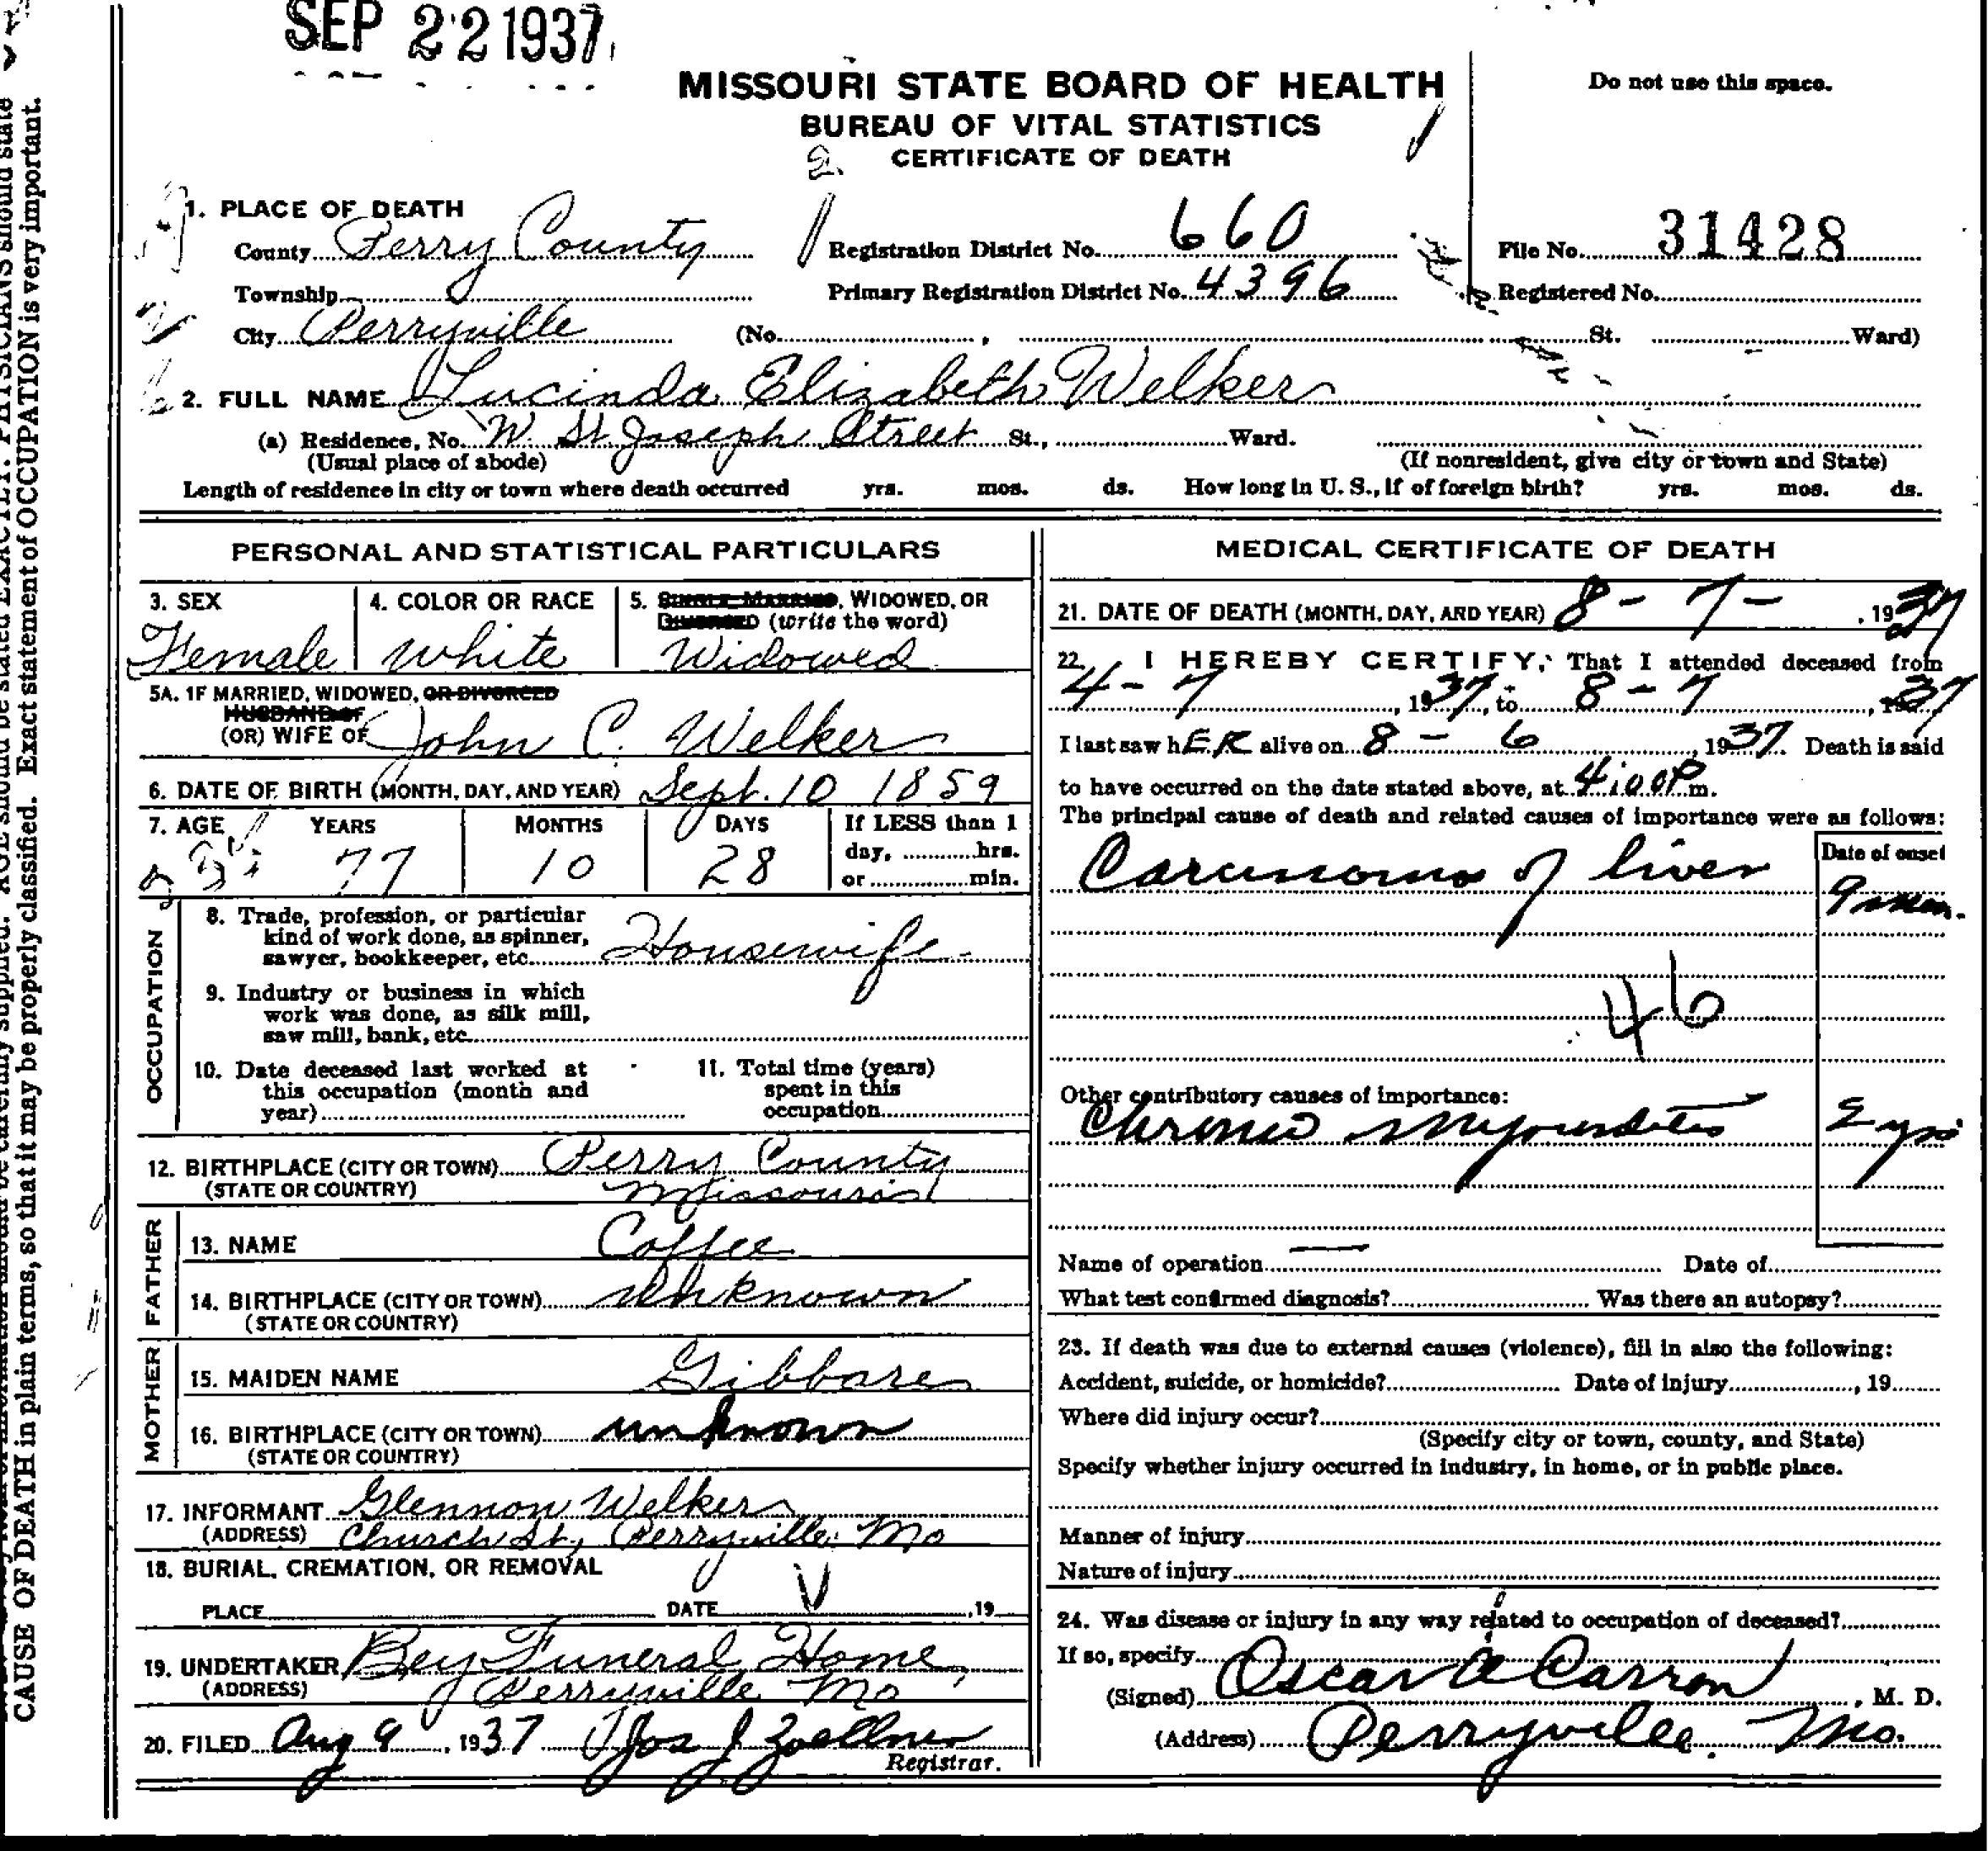 SEP 22 1937
MISSOURI STATE BOARD OF HEALTH
BUREAU OF VITAL STATISTICS
CERTIFICATE OF DEATH
Do not use this space.
1. PLACE OF DEATH
County Perry County
Registration District No. 660
File No. 31428
Township
Primary Registration District No. 4396
Registered No.
City Perryville (No. , St. Ward)
2. FULL NAME Lucinda Elizabeth Welker
(a) Residence, No. W. St Joseph Street St., Ward.
(Usual place of abode) (If nonresident, give city or town and State)
Length of residence in city or town where death occurred yrs. mos. ds. How long in U. S., if of foreign birth? yrs. mos. ds.
PERSONAL AND STATISTICAL PARTICULARS
3. SEX
Female
4. COLOR OR RACE
White
5. SINGLE, MARRIED, WIDOWED, OR
DIVORCED (write the word)
Widowed
5A. IF MARRIED, WIDOWED, OR DIVORCED
HUSBAND OF
(OR) WIFE OF John C. Welker
6. DATE OF BIRTH (MONTH, DAY, AND YEAR) Sept. 10 1859
7. AGE YEARS MONTHS DAYS If LESS than 1
day, hrs.
or min.
77 10 28
OCCUPATION
8. Trade, profession, or particular
kind of work done, as spinner,
sawyer, bookkeeper, etc. Housewife
9. Industry or business in which
work was done, as silk mill,
saw mill, bank, etc.
10. Date deceased last worked at
this occupation (month and
year)
11. Total time (years)
spent in this
occupation
12. BIRTHPLACE (CITY OR TOWN) Perry County
(STATE OR COUNTRY) Missouri
FATHER
13. NAME Coffee
14. BIRTHPLACE (CITY OR TOWN) Unknown
(STATE OR COUNTRY)
MOTHER
15. MAIDEN NAME Gibbare
16. BIRTHPLACE (CITY OR TOWN) unknown
(STATE OR COUNTRY)
17. INFORMANT Glennon Welker
(ADDRESS) Church St, Perryville Mo
18. BURIAL, CREMATION, OR REMOVAL
PLACE DATE , 19
19. UNDERTAKER Bey Funeral Home
(ADDRESS) Perryville Mo
20. FILED Aug 9, 1937 Jos J Zoellner
Registrar.
MEDICAL CERTIFICATE OF DEATH
21. DATE OF DEATH (MONTH, DAY, AND YEAR) 8 - 7 - , 1937
22. I HEREBY CERTIFY, That I attended deceased from
4 - 7, 1937, to 8 - 7, 1937
I last saw hER alive on 8 - 6, 1937. Death is said
to have occurred on the date stated above, at 4:00 P.m.
The principal cause of death and related causes of importance were as follows:
Date of onset
Carcinoma of liver
46
Other contributory causes of importance:
Chronic Myocarditis 2 yrs
Name of operation — Date of
What test confirmed diagnosis? Was there an autopsy?
23. If death was due to external causes (violence), fill in also the following:
Accident, suicide, or homicide? Date of injury , 19
Where did injury occur?
(Specify city or town, county, and State)
Specify whether injury occurred in industry, in home, or in public place.
Manner of injury
Nature of injury
24. Was disease or injury in any way related to occupation of deceased?
If so, specify
(Signed) Oscar A Carron, M. D.
(Address) Perryville. Mo.
CAUSE OF DEATH in plain terms, so that it may be properly classified. Exact statement of OCCUPATION is very important.